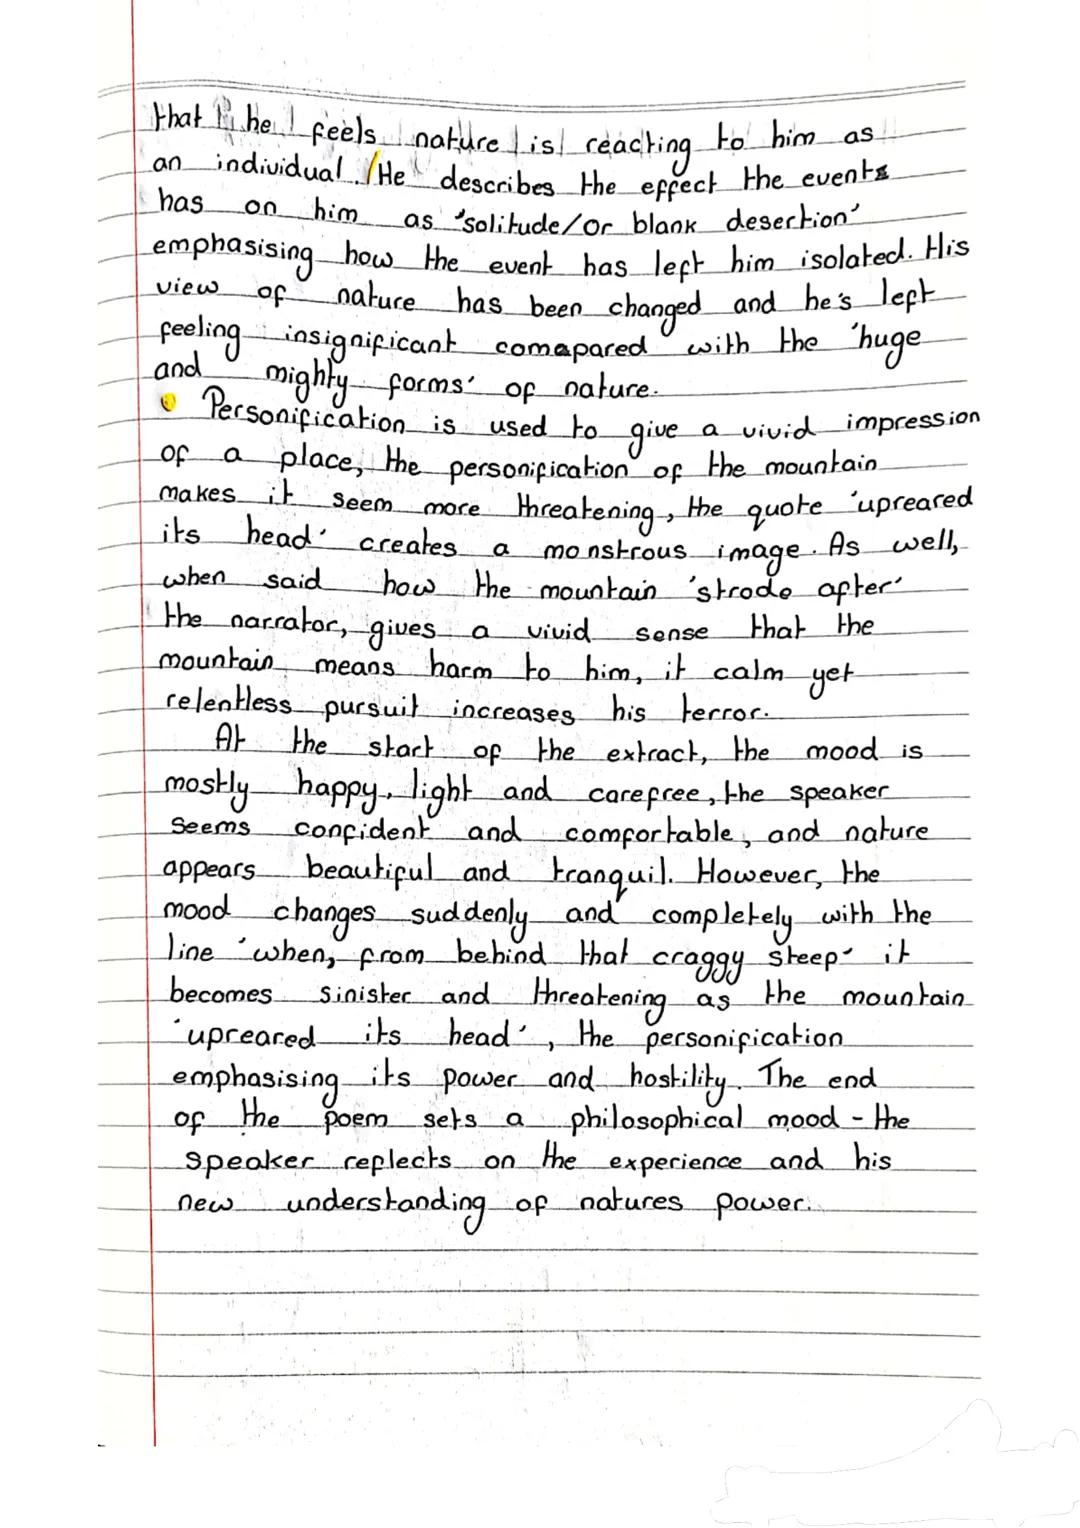 that he feels nature is reacting to him as
an individual. He describes the effect the events
has on him as 'solitude/or blank desertion'
emphasising how the event has left him isolated. His
view of nature has been changed and he's left
feeling insignificant comapared with the 'huge
and mighty forms' of nature.
Personification is used to give a vivid impression
of a place, the personification of the mountain
makes it seem more threatening, the quote 'upreared
its head' creates a monstrous image. As well,
when said how the mountain 'strode after'
the narrator, gives a vivid sense that the
mountain means harm to him, it calm yet
relentless pursuit increases his terror.
At the start of the extract, the mood is
mostly happy, light and carefree, the speaker
seems confident and comfortable, and nature
appears beautiful and tranquil. However, the
mood changes suddenly and completely with the
line 'when, from behind that craggy steep' it
becomes sinister and threatening as the mountain
'upreared its head', the personification
emphasising its power and hostility. The end
of the poem sets a philosophical mood - the
speaker reflects on the experience and his
new understanding of natures power.